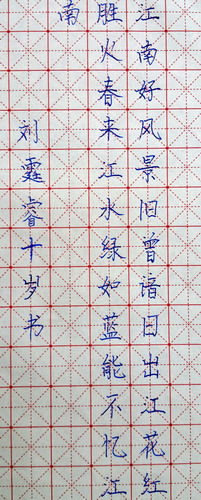 江南好风景旧曾谙日出江花红
胜火春来江水绿如蓝能不忆江
南
刘霆睿十岁书